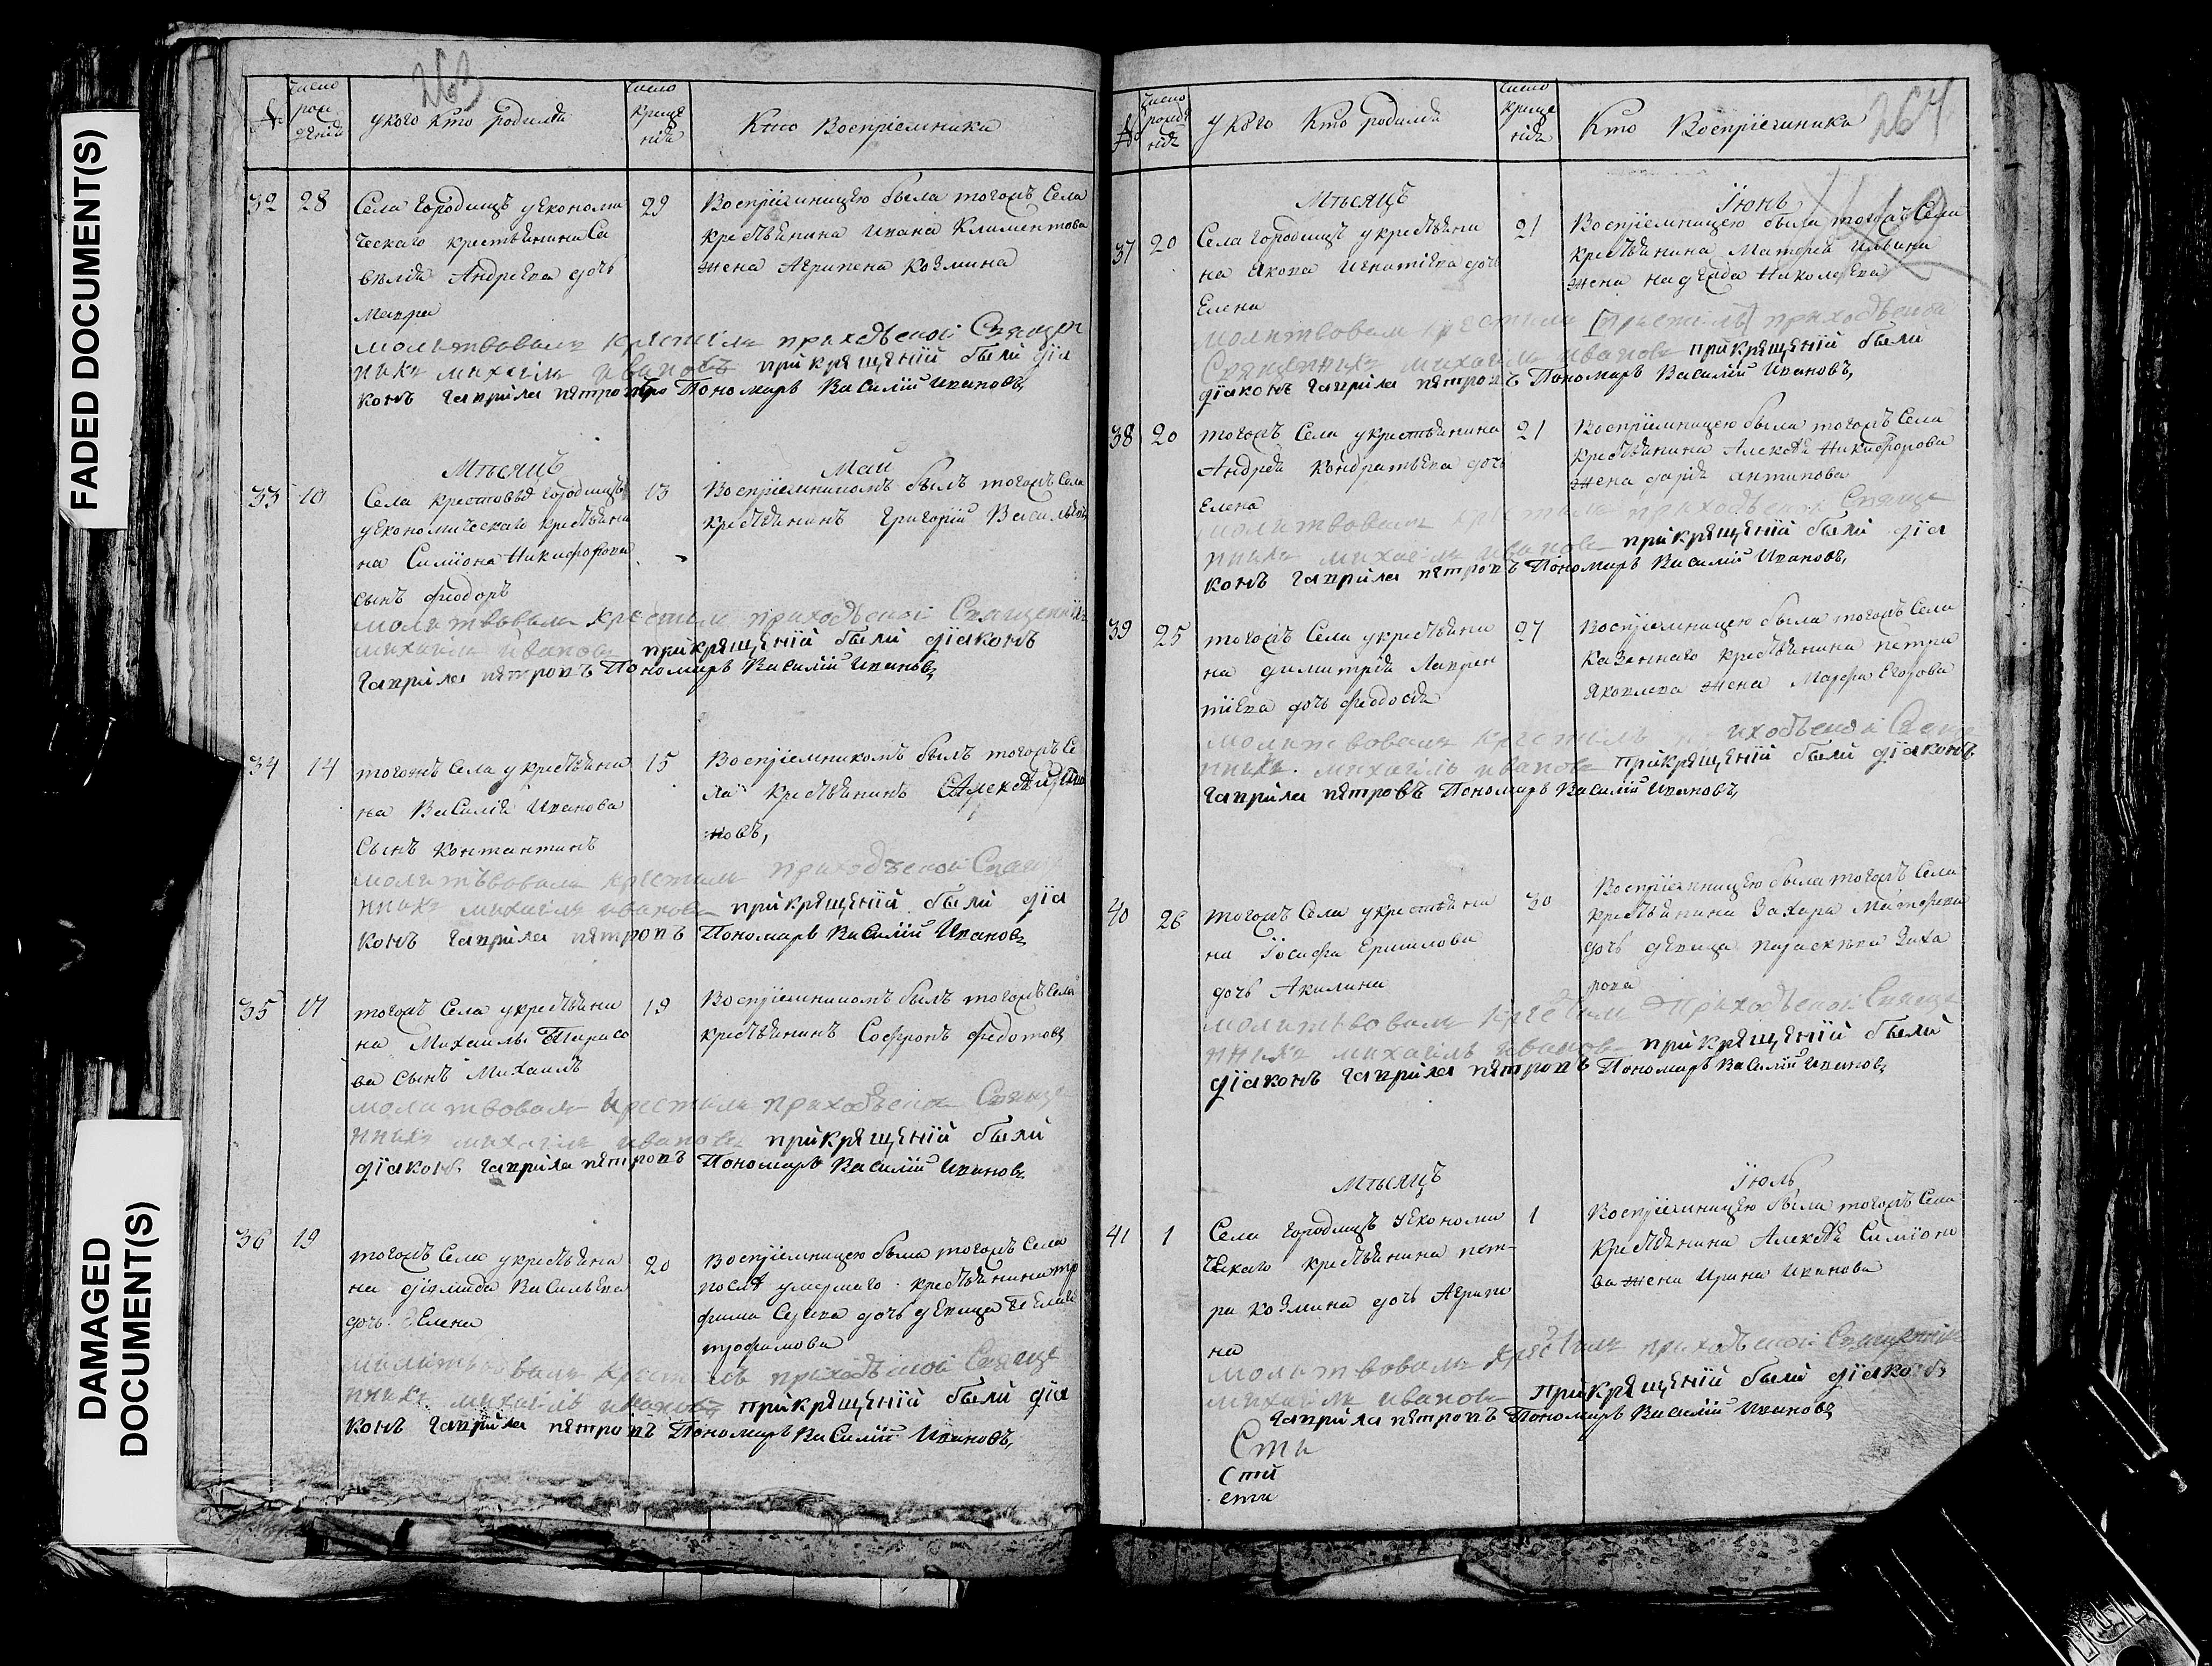 FADED DOCUMENT(S)
DAMAGED
DOCUMENT(S)
263
№
число рождения
у кого кто родился
число крещения
Кто Восприемники
32 28
29
Села Городищъ у Економи
ческаго крестьянина Са
велія Андреева дочь
Мавра
Восприемницею была тогожъ Села
крестьянина Ивана Климентова
жена Агрипена Козмина
молитвовалъ крестилъ приходской Священ
никъ михаилъ ивановъ прикрещеніи были діа
конъ гаврила петровъ Пономарь Василий Ивановъ,
Мѣсяцъ
Май
33 10
13
Села крестовыя Городищъ
у Економическаго крестьяни
на Симиона Никифорова
сынъ Феодоръ
Восприемникомъ былъ тогожъ Села
крестьянинъ Григорий Васильевъ
молитвовалъ крестилъ приходской Священникъ
михаилъ ивановъ прикрещеніи были діаконъ
гаврила петровъ Пономарь Василий Ивановъ
34 14
15
тогожъ Села у крестьяни
на Василія Иванова
Сынъ Контантинъ
Восприемникомъ былъ тогожъ Се
ла крестьянинъ Алексѣй
новъ,
молитъвовалъ крестилъ приходской Свяще
нникъ михаилъ ивановъ прикрещеніи были діа
конъ гаврила петровъ Пономарь Василий Ивановъ
35 17
19
тогожъ Села у крестьяни
на Михаилы Тарасо
ва Сынъ Михаилъ
Восприемникомъ былъ тогожъ Села
крестьянинъ Софронъ Федотовъ
молитвовалъ крестилъ приходской Свяще
нникъ михаилъ ивановъ прикрещеніи были
діаконъ гаврила петровъ Пономарь Василий Ивановъ
36 19
20
тогожъ Села у крестьяни
на Діамида Васильева
дочь Елена
Восприемницею была тогожъ Села
послѣ умершаго крестьянина тро
фима дочь девица
трофимова
молитвовалъ крестилъ приходской Свяще
нникъ михаилъ ивановъ прикрещеніи были діа
конъ гаврила петровъ Пономарь Василий Ивановъ,
264
№
число рожденія
у кого кто родился
число крещенія
Кто Восприемники
Мѣсяцъ
Іюнь
37 20
21
Села Городищъ у крестьяни
на Якова Игнатіева дочь
Елена
Восприемницею была тогожъ Села
крестьянина Матфея Ильина
жена надежда Николаева
молитвовалъ крестилъ приходской
Священникъ михаилъ ивановъ прикрещеніи были
діаконъ гаврила петровъ Пономарь Василий Ивановъ,
38 20
21
тогожъ Села у крестьянина
Андрея Кондратьева дочь
Елена
Восприемницею была тогожъ Села
крестьянина Алексѣя Никифорова
жена дарія антипова
молитвовалъ крестилъ приходской Свяще
нникъ михаилъ ивановъ прикрещеніи были діа
конъ гаврила петровъ Пономарь Василий Ивановъ,
39 25
27
тогожъ Села у крестьяни
на димитрія Лаврен
тіева дочь феодосія
Восприемницею была тогожъ Села
казеннаго крестьянина петра
Яковлева жена Марфа Егорова
молитвовалъ крестилъ приходской Свяще
нникъ михаилъ ивановъ прикрещеніи были діаконъ
гаврила петровъ Пономарь Василий Ивановъ,
40 26
30
тогожъ Села у крестьяни
на Іосифа Ермилова
дочь Акилина
Восприемницею была тогожъ Села
крестьянина Захара Матфеева
дочь девица параскева Заха
рова
молитвовалъ крестилъ приходской Свяще
нникъ михаилъ ивановъ прикрещеніи были
діаконъ гаврила петровъ Пономарь Василий Ивановъ
Мѣсяцъ
Іюль
41 1
1
Села Городищъ у Економи
ческаго крестьянина пет-
ра козмина дочь Агрипе
на
Восприемницею была тогожъ Села
крестьянина Алексѣя Симіоно
ва жена Ирина Иванова
молитвовалъ крестилъ приходской Священникъ
михаилъ ивановъ прикрещеніи были діаконъ
гаврила петровъ Пономарь Василий Ивановъ
Сти
сти
сти